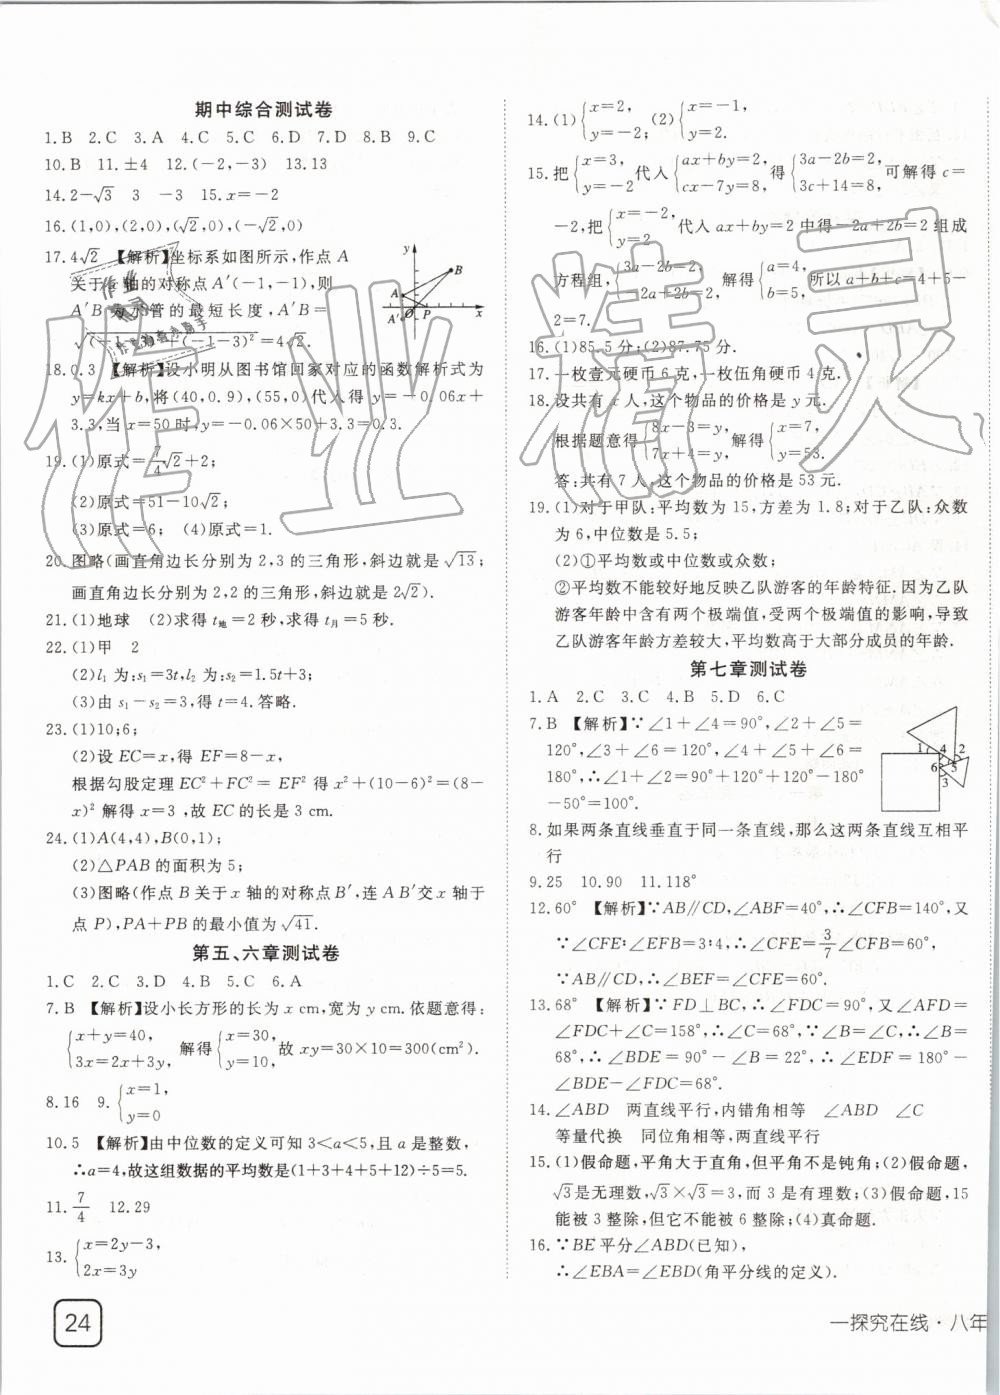 期中综合测试卷
1.B 2.C 3.A 4.C 5.C 6.D 7.D 8.B 9.C
10.B 11.±4 12.(-2,-3) 13.13
14.2-√3 3 -3 15.x=-2
16.(1,0),(2,0),(√2,0),(-√2,0)
17.4√2 【解析】坐标系如图所示,作点A
关于x轴的对称点A′(-1,-1),则
A′B为水管的最短长度,A′B=
√(-1-3)²+(-1-3)²=4√2.
y
B
A
A′
O
P
x
18.0.3 【解析】设小明从图书馆回家对应的函数解析式为
y=kx+b,将(40,0.9),(55,0)代入得y=-0.06x+
3.3,当x=50时,y=-0.06×50+3.3=0.3.
19.(1)原式=7/4√2+2;
(2)原式=51-10√2;
(3)原式=6; (4)原式=1.
20.图略(画直角边长分别为2,3的三角形,斜边就是√13;
画直角边长分别为2,2的三角形,斜边就是2√2).
21.(1)地球 (2)求得t地=2秒,求得t月=5秒.
22.(1)甲 2
(2)l₁为:s₁=3t,l₂为:s₂=1.5t+3;
(3)由s₁-s₂=3,得t=4.答略.
23.(1)10;6;
(2)设EC=x,得EF=8-x,
根据勾股定理EC²+FC²=EF²得x²+(10-6)²=(8-
x)²解得x=3,故EC的长是3 cm.
24.(1)A(4,4),B(0,1);
(2)△PAB的面积为5;
(3)图略(作点B关于x轴的对称点B′,连AB′交x轴于
点P),PA+PB的最小值为√41.
第五、六章测试卷
1.C 2.C 3.D 4.B 5.C 6.A
7.B 【解析】设小长方形的长为x cm,宽为y cm.依题意得:
{x+y=40, 3x=2x+3y, 解得{x=30, y=10, 故xy=30×10=300(cm²).
8.16 9.{x=1, y=0
10.5 【解析】由中位数的定义可知3<a<5,且a是整数,
∴a=4,故这组数据的平均数是(1+3+4+5+12)÷5=5.
11.7/4 12.29
13.{x=2y-3, 2x=3y
14.(1){x=2, y=-2; (2){x=-1, y=2.
15.把{x=3, y=-2代入{ax+by=2, cx-7y=8,得{3a-2b=2, 3c+14=8,可解得c=
-2,把{x=-2, y=2代入ax+by=2中得-2a+2b=2组成
方程组,{3a-2b=2, -2a+2b=2,解得{a=4, b=5,所以a+b+c=4+5-
2=7.
16.(1)85.5分;(2)87.75分.
17.一枚壹元硬币6克,一枚伍角硬币4克.
18.设共有x人,这个物品的价格是y元.
根据题意得{8x-3=y, 7x+4=y, 解得{x=7, y=53.
答:共有7人,这个物品的价格是53元.
19.(1)对于甲队:平均数为15,方差为1.8;对于乙队:众数
为6,中位数是5.5;
(2)①平均数或中位数或众数;
②平均数不能较好地反映乙队游客的年龄特征.因为乙队
游客年龄中含有两个极端值,受两个极端值的影响,导致
乙队游客年龄方差较大,平均数高于大部分成员的年龄.
第七章测试卷
1.A 2.C 3.C 4.B 5.D 6.C
7.B 【解析】∵∠1+∠4=90°,∠2+∠5=
120°,∠3+∠6=120°,∠4+∠5+∠6=
180°,∴∠1+∠2+∠3=90°+120°+120°-180°
-50°=100°.
1 4 2
6 5
3
8.如果两条直线垂直于同一条直线,那么这两条直线互相平
行
9.25 10.90 11.118°
12.60° 【解析】∵AB∥CD,∠ABF=40°,∴∠CFB=140°,又
∵∠CFE∶∠EFB=3∶4,∴∠CFE=3/7∠CFB=60°,
∵AB∥CD,∴∠BEF=∠CFE=60°.
13.68° 【解析】∵FD⊥BC,∴∠FDC=90°,又∠AFD=
∠FDC+∠C=158°,∴∠C=68°.∵∠B=∠C,∴∠B=
68°,∴∠BDE=90°-∠B=22°,∴∠EDF=180°-
∠BDE-∠FDC=68°.
14.∠ABD 两直线平行,内错角相等 ∠ABD ∠C
等量代换 同位角相等,两直线平行
15.(1)假命题,平角大于直角,但平角不是钝角;(2)假命题,
√3是无理数,√3×√3=3,而3是有理数;(3)假命题,15
能被3整除,但它不能被6整除;(4)真命题.
16.∵BE平分∠ABD(已知),
∴∠EBA=∠EBD(角平分线的定义).
24
一探究在线·八年
作业精灵